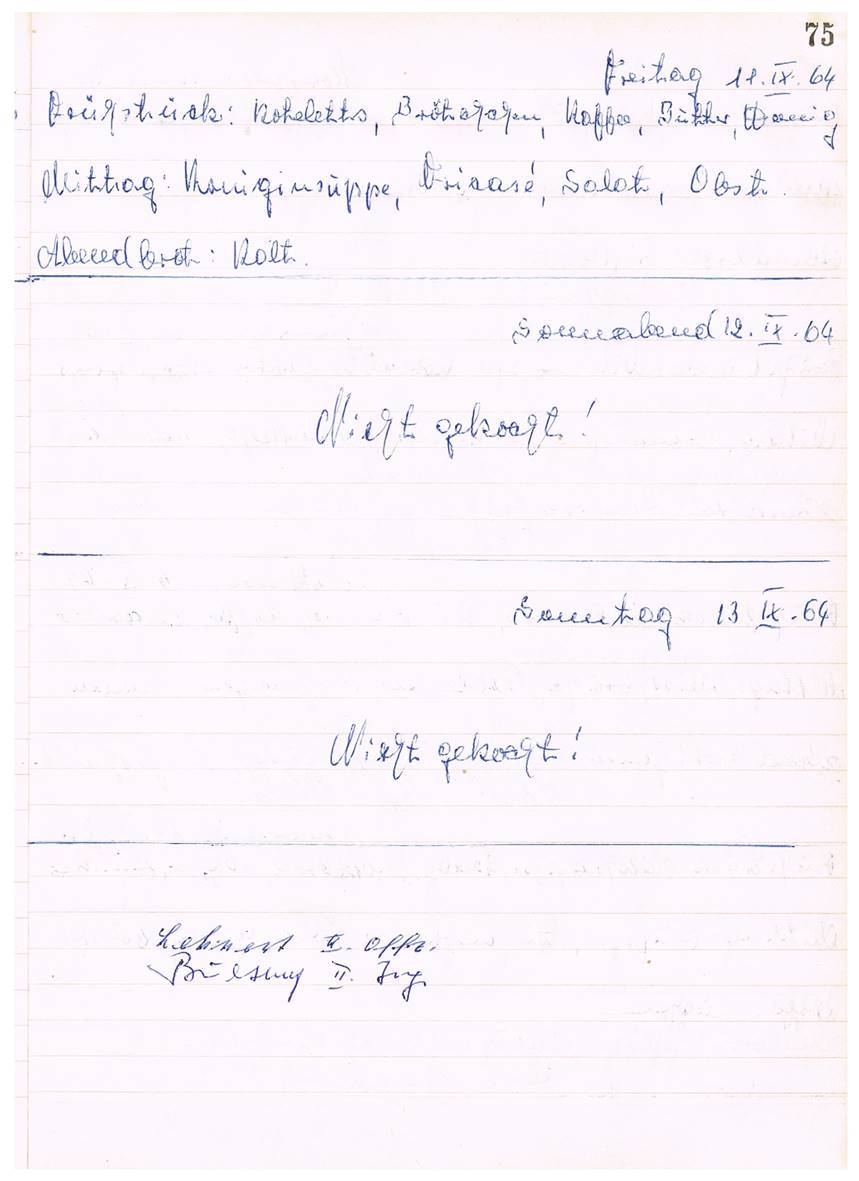 75
Freitag 11. IX. 64
Frühstück: Koteletts, Brötchen, Kaffee, Butter, Honig
Mittag: Königinsuppe, Fricasé, Salat, Obst.
Abendbrot: Kalt.
Sonnabend 12. IX. 64
Nicht gekocht!
Sonntag 13 IX. 64
Nicht gekocht!
Lehnert II. Offz.
II. Ing.